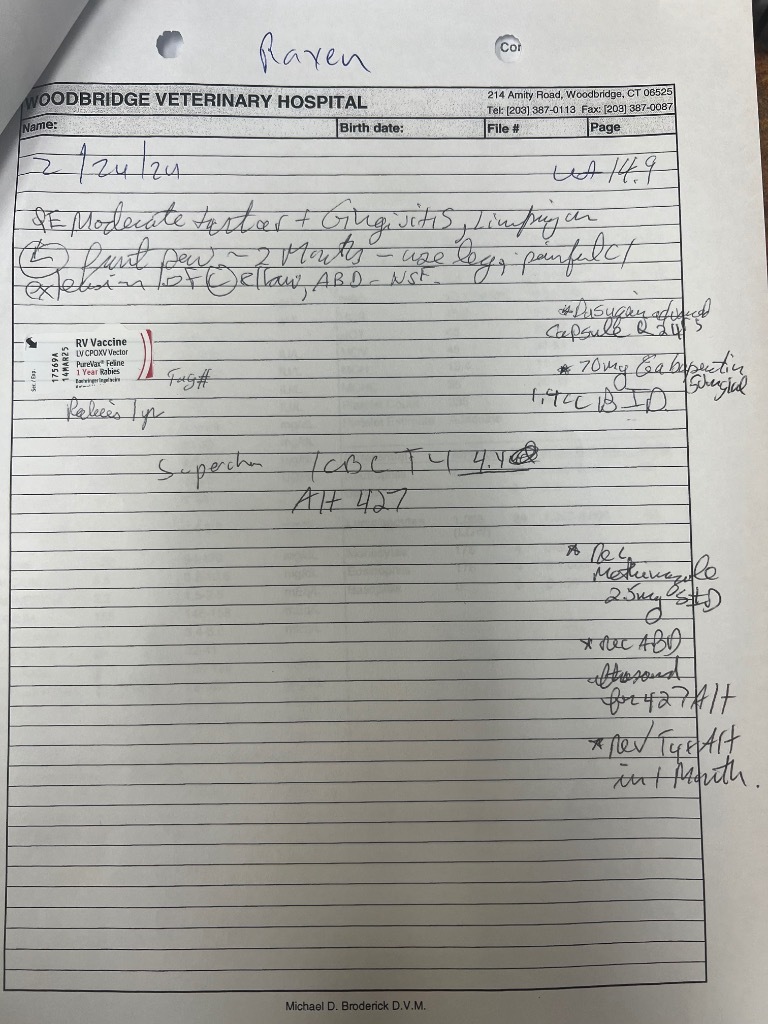 Raven
Cor
WOODBRIDGE VETERINARY HOSPITAL
214 Amity Road, Woodbridge, CT 06525
Tel: [203] 387-0113 Fax: [203] 387-0087
Name: Birth date: File # Page
2/24/24 wt 14.9
PE Moderate tartar + Gingivitis, Limping on
(L) front paw ~ 2 Months - use leg, painful
extension of (L) elbow, ABD - NSF.
* Dasuquin advanced
Capsule Q 24
RV Vaccine
LV CPOXV Vector
PureVax® Feline
1 Year Rabies
Boehringer Ingelheim
Ser./Exp.
17569A
14MAR25
Tag#
* 70mg Gabapentin
BID
Rabies 1yr
Superchem /CBC T4 4.4
Alt 427
* Rec
Methimazole
2.5mg SID
* Rec ABD
ultrasound
for 427 Alt
* Rev T4 & Alt
in 1 Month.
Michael D. Broderick D.V.M.